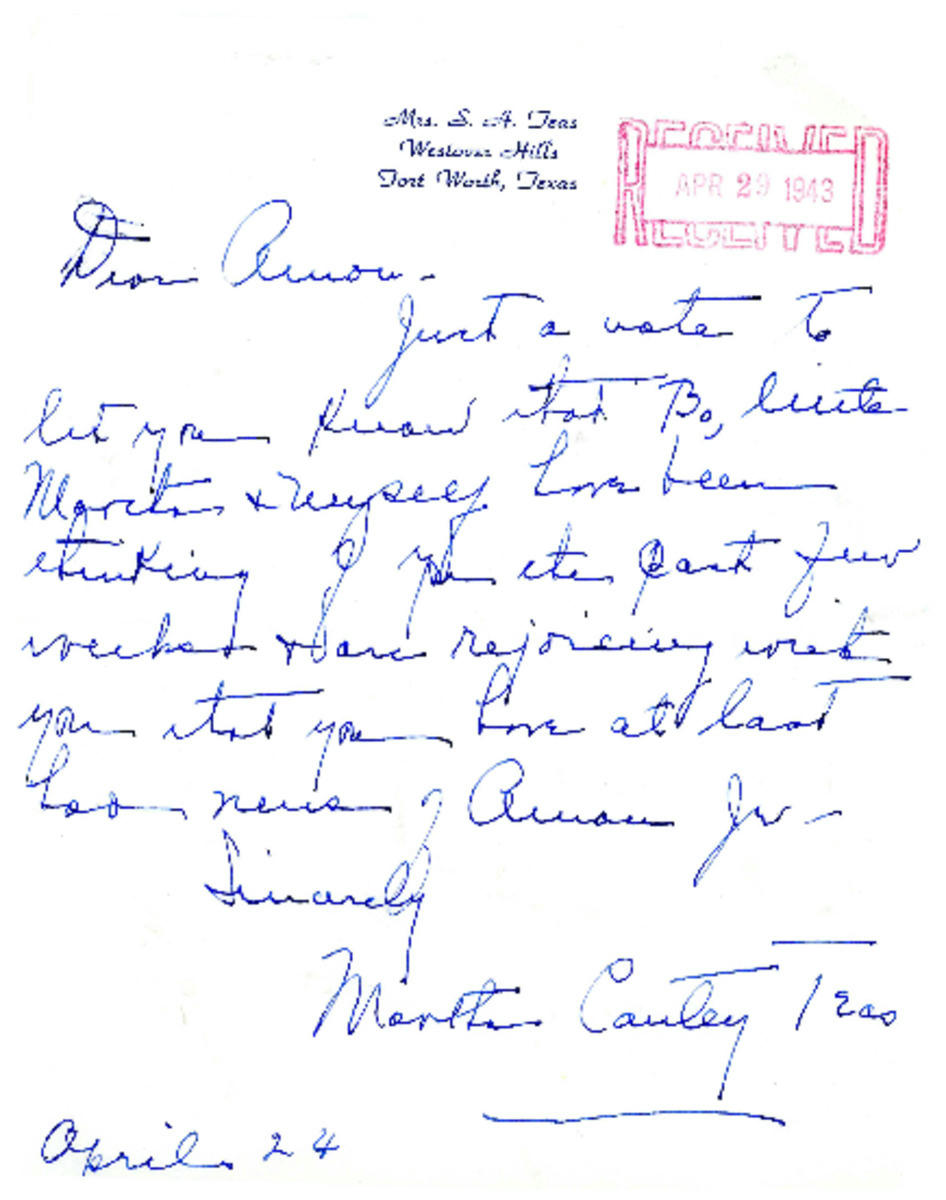 Mrs. S. A. Teas
Westover Hills
Fort Worth, Texas
RECEIVED
APR 29 1943
RECEIVED
Dear Amon -
Just a note to
let you know that Bo, little
Martha & myself have been
thinking of you the past few
weeks & are rejoicing with
you that you have at last
had news of Amon Jr -
Sincerely
Martha Cantey Teas
April 24